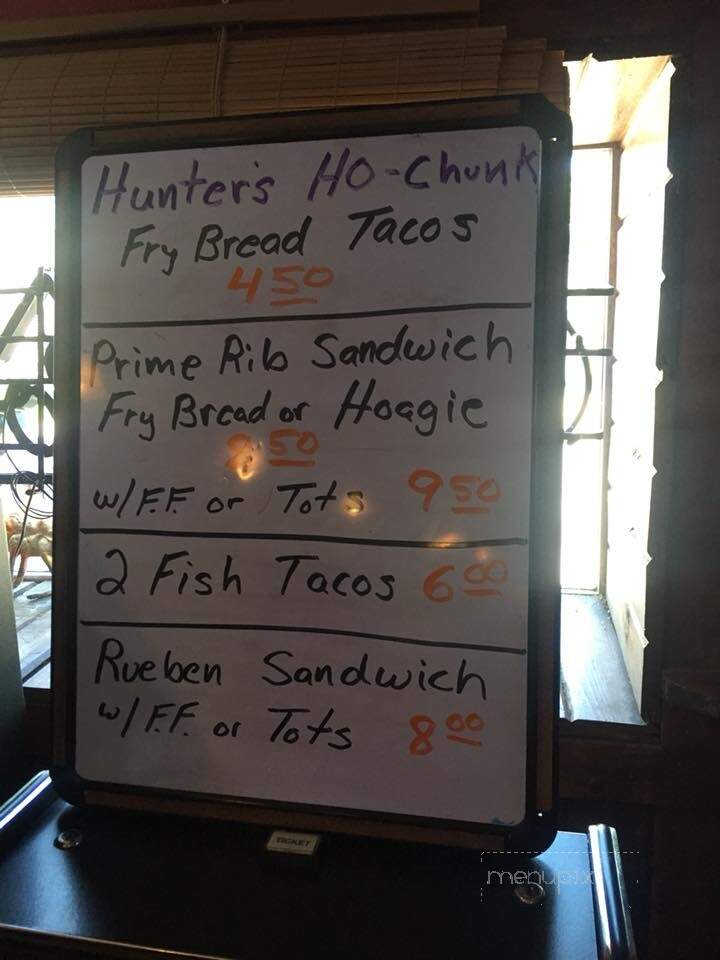 Hunter's HO-Chunk
Fry Bread Tacos
4 50
Prime Rib Sandwich
Fry Bread or Hoagie
8 50
w/ F.F. or Tots 9 50
2 Fish Tacos 6 00
Rueben Sandwich
w/ F.F. or Tots 8 00
TICKET
menupix